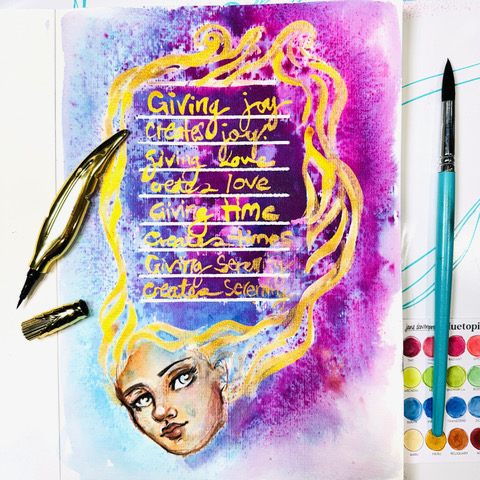 Giving joy
creates joy
giving love
creates love
Giving time
creates time
Giving Serenity
creates Serenity